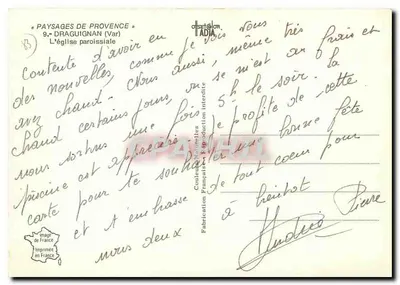 « PAYSAGES DE PROVENCE »
9.- DRAGUIGNAN (Var)
L'église paroissiale
contente d'avoir eu
des nouvelles, comme je vois vous
avez chaud. Nous aussi, même très
chaud certains jours, on frais et
nous sortons une fois 5h. le soir. la
piscine est appréciée. je profite de cette
carte pour te souhaiter une bonne fête
et t'embrasse de tout cœur pour
nous deux
à bientôt
Pierre
Andrée
Reproduction interdite
Fabrication Française
Image
de France
Imprimée
en France